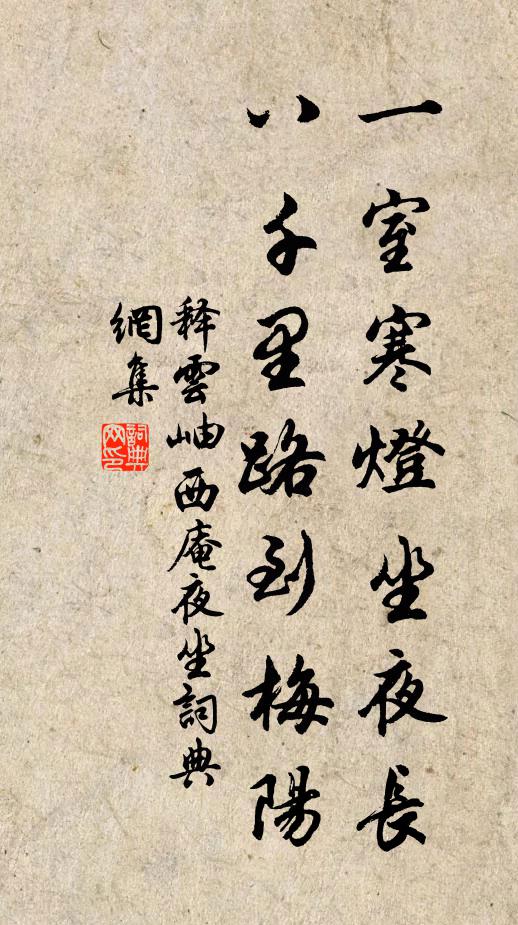 一室寒燈坐夜長
八千里路到梅陽
释雲岫西庵夜坐詞典
網集
詞典网印